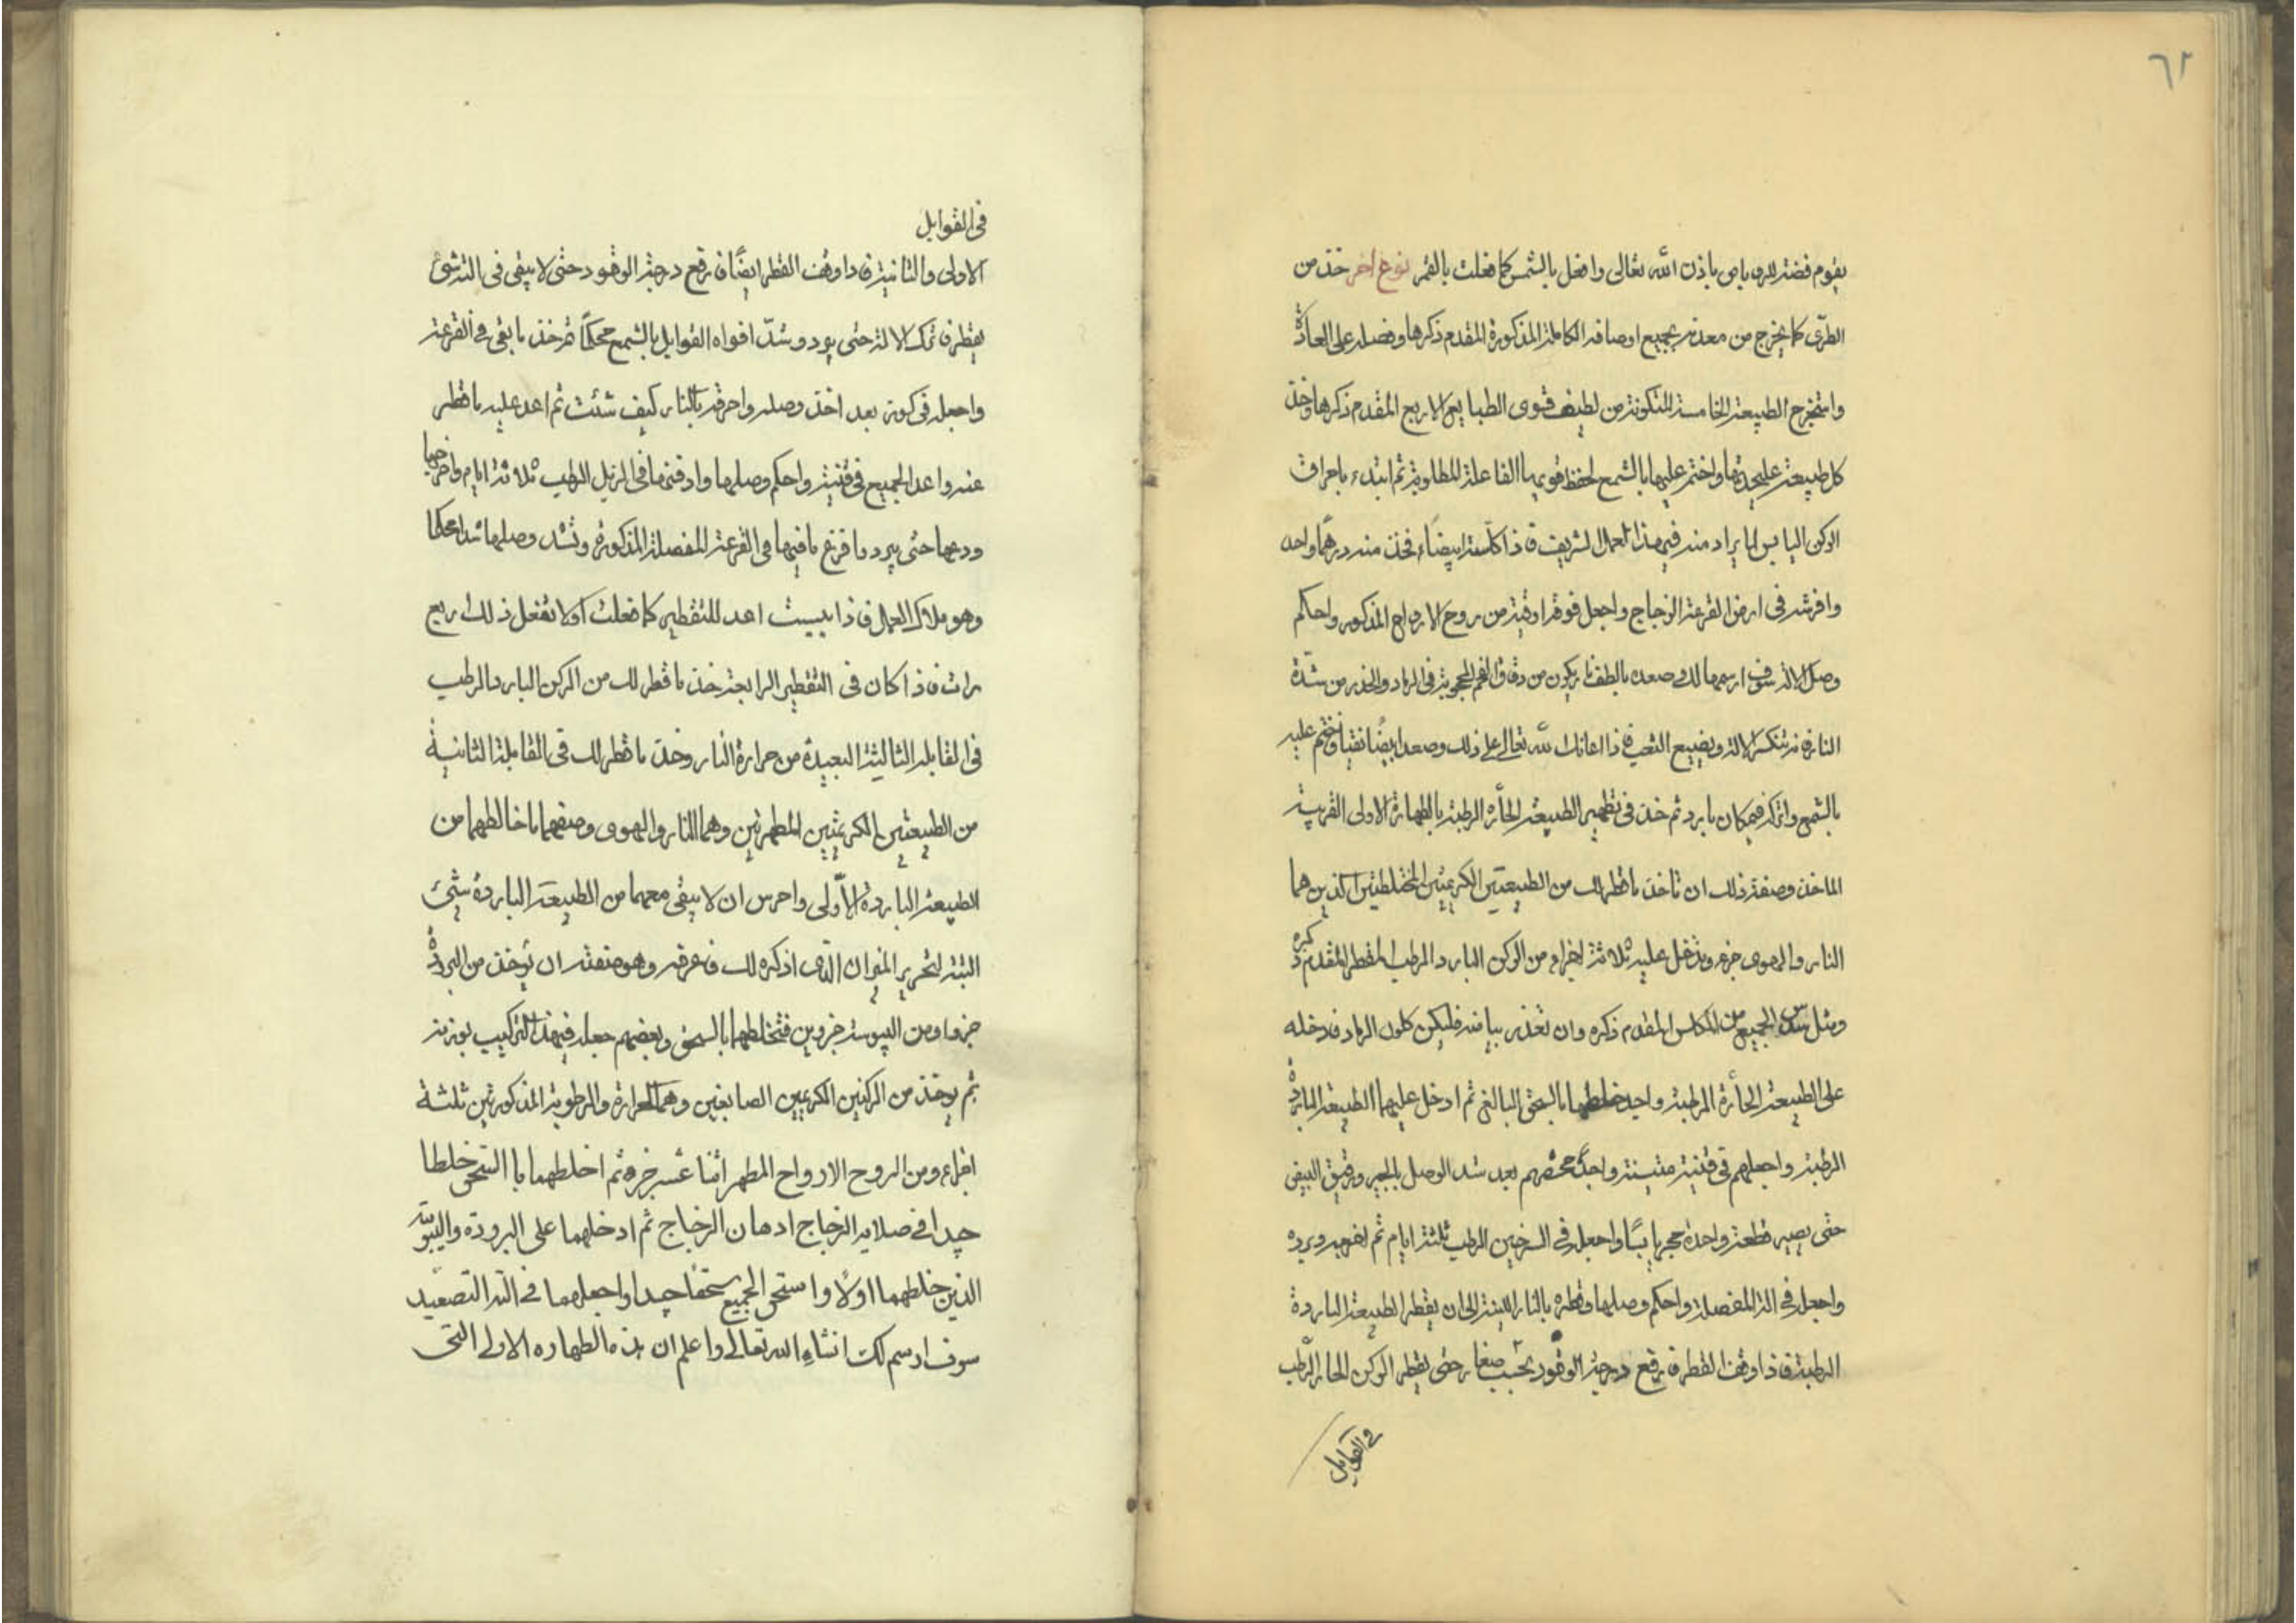 ٦٢
يقوم فضة للروباص باذن الله تعالى وافعل بالشمس كما فعلت بالقمر نوع اخر خذ من
الطرى كما يخرج من معدنه بجميع اوصافه الكاملة المذكورة المقدم ذكرها وفصله على العادة
واستخرج الطبيعة الخامسة المتكونة من لطيف قوى الطبايع الاربع المقدم ذكرها وخذ
كل طبيعة عليحدتها واختم عليها بالشمع لحفظ قويها الفاعلة المطلوبة ثم ابتدء باحراق
الركن اليابس لما يراد منه فيهذا العمل الشريف فاذا كلسته ابيضاء فخذ منه درهما واحد
وافرشه فى ارض القرعة الزجاج واجعل فوقه اوقية من روح الارواح المذكور واحكم
وصل الالة سوف ارسمها لك وصعده بالطف نار يكون من دقاق الفحم المحجوبة فى الرماد والحذر من شدة
النار فتنكسر الالة ويضيع التعب فاذا اعانك الله تعالى على ذلك وصعد ابيضا نقيا فختم عليه
بالشمع واتركه فيمكان بارد ثم خذ فى تطهير الطبيعة الحارة الرطبة بالطهارة الاولى القريبة
الماخذ وصفة ذلك ان تاخذ ما قطر لك من الطبيعتين الكريمتين المختلطتين الذين هما
النار والهوى جزء وتدخل عليه ثلاثة اجزاء من الركن البارد الرطب المقطر المقدم ذكره
ومثل سدس الجميع من الكلس المقدم ذكره وان تعذر بياضه فليكن كلون الرماد فدخله
على الطبيعة الحارة الرطبة واجيد خلطها بالسحق البالغ ثم ادخل عليهما الطبيعة الباردة
الرطبة واجعلهم فى قنينة متينة واجد خضهم بعد شد الوصل بالجير ورقيق البيض
حتى يصير قطعة واحدة حجريابسا واجعله فى السرجين الرطب ثلثة ايام ثم اخرجه وبرده
واجعله فى الة المفصلة واحكم وصلها وقطره بالنار اللينة الى ان يقطر الطبيعة الباردة
الرطبة فاذا وقف القطر فارفع درجة الوقود بحسب صغار حتى يقطر الركن الحار الرطب
فى القوابل
فى القوابل
الاولى والثانية فاذا وقف القطر ايضا فارفع درجة الوقود حتى لا يبقى فى الة شئ
يقطر فاترك الالة حتى يبرد وشد افواه القوابل بالشمع محكما ثم خذ ما بقى فى القرعة
واجعله فى كوزة بعد اخذ وصله واحرقه بالنار كيف شئت ثم اعد عليه ما قطر
عنه واعد الجميع فى قنينة واحكم وصلها وادفنها فى الزبل الرطب ثلاثة ايام واخرجها
ودعها حتى يبرد وافرغ ما فيها فى القرعة المفصلة المذكورة وتشد وصلها شدا محكما
وهو ملاك العمل فاذا يبست اعد للتقطير كما فعلت اولا تفعل ذلك اربع
مرات فاذا كان فى التقطير الرابعة خذ ما قطر لك من الركن البارد الرطب
فى القابلة الثالثة البعيدة من حرارة النار وخذ ما قطر لك فى القابلة الثانية
من الطبيعتين الكريمتين المطهرتين وهما النار والهوى وصفهما ما خالطهما من
الطبيعة الباردة الاولى واحرس ان لا يبقى معهما من الطبيعة الباردة شئ
البتة لتحرير الميزان الذى اذكره لك فاعرفه وهو صفته ان يؤخذ من البرودة
جزوا ومن اليبوسة جزوين فتخلطهما بالسحق وبعضهم جعله فيهذا التركيب بوزنه
ثم يوخذ من الركنين الكريمين الصابغين وهما الحرارة والرطوبة المذكورتين ثلثة
اجزاء ومن الروح الارواح المطهر اثنا عشر جزء ثم اخلطهما باالسحق خلطا
جيدا فى صلايه الزجاج ادهان الزجاج ثم ادخلهما على البرودة واليبوسة
الذين خلطهما اولا واستحق الجميع ستحقا جيدا واجعلهما فى الة التصعيد
سوف ارسم لك انشاء الله تعالى واعلم ان هذه الطهارة الاولى التى